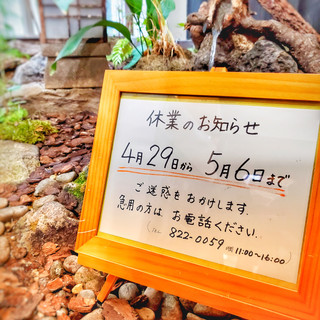 休業のお知らせ
4月29日から 5月6日まで
ご迷惑をおかけします.
急用の方は お電話ください.
822-0059 11:00〜16:00